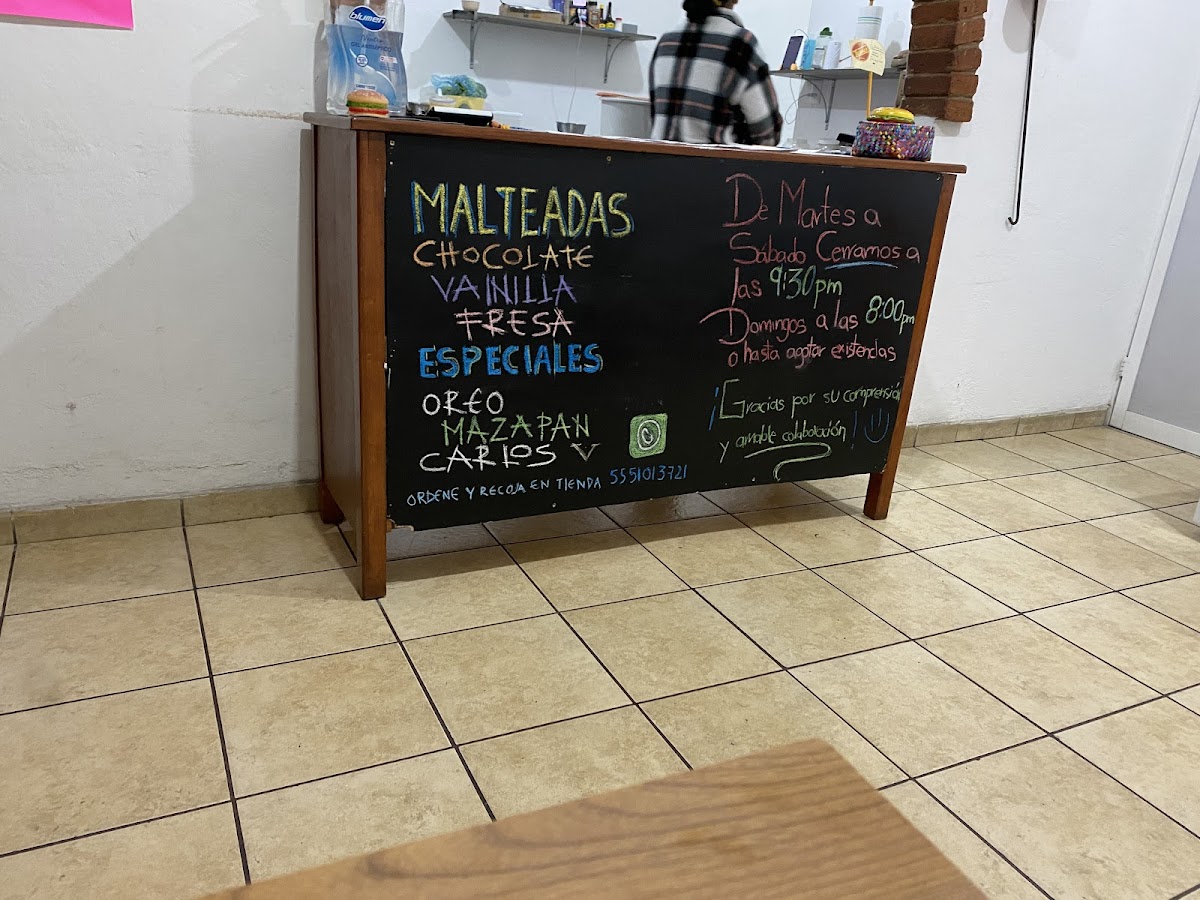 blumen
MALTEADAS
CHOCOLATE
VAINILLA
FRESA
ESPECIALES
OREO
MAZAPAN
CARLOS V
ORDENE Y RECOJA EN TIENDA 5551013721
De Martes a
Sábado Cerramos a
las 9:30pm
Domingos a las 8:00pm
o hasta agotar existencias
¡Gracias por su comprensión
y amable colaboración!